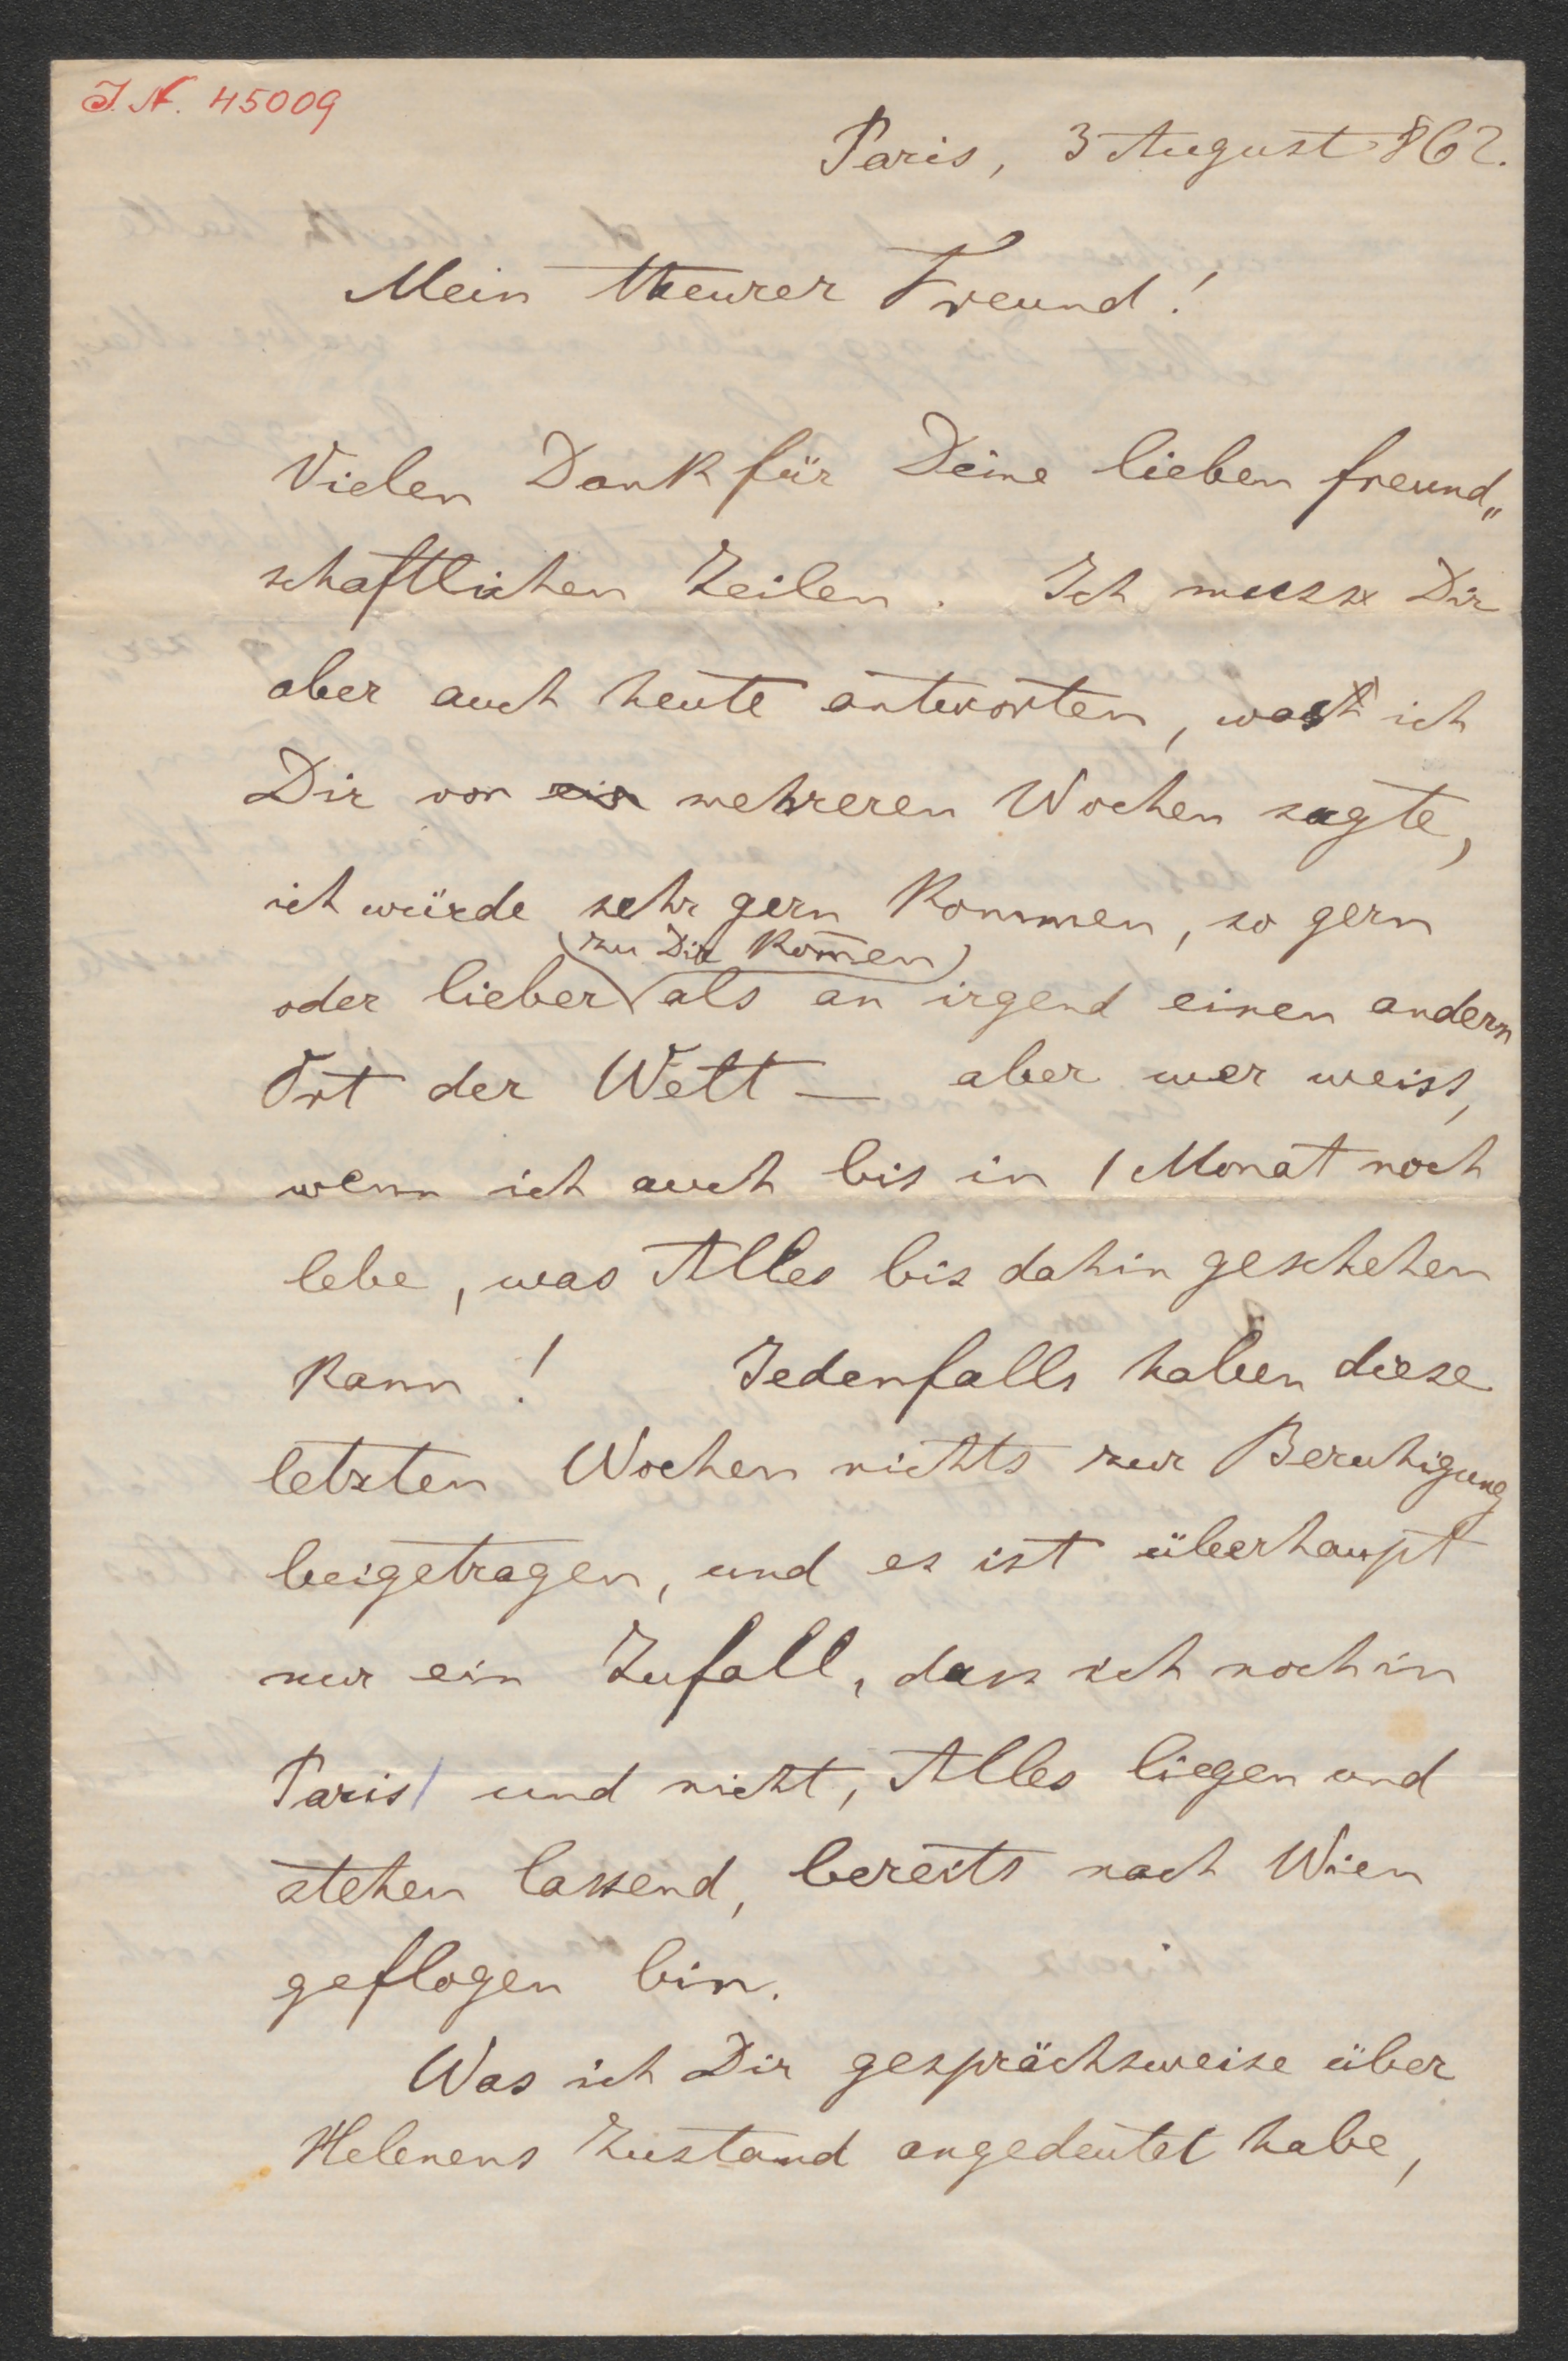 J.N. 45009
Paris, 3 August 862.
Mein theurer Freund!
Vielen Dank für Deine lieben freund„
schaftlichen Zeilen. Ich muss Dir
aber auch heute antworten, was ich
Dir vor ein mehreren Wochen sagte,
ich würde sehr gern kommen, so gern
(zu Dir kom̄en)
oder lieber als an irgend einen andern
Ort der Welt — aber wer weiss,
wenn ich auch bis in 1 Monat noch
lebe, was Alles bis dahin geschehen
kann! Jedenfalls haben diese
letzten Wochen nichts zur Beruhigung
beigetragen, und es ist überhaupt
nur ein Zufall, dass ich noch in
Paris/ und nicht, Alles liegen und
stehen lassend, bereits nach Wien
geflogen bin.
Was ich Dir gesprächsweise über
Helenens Zustand angedeutet habe,